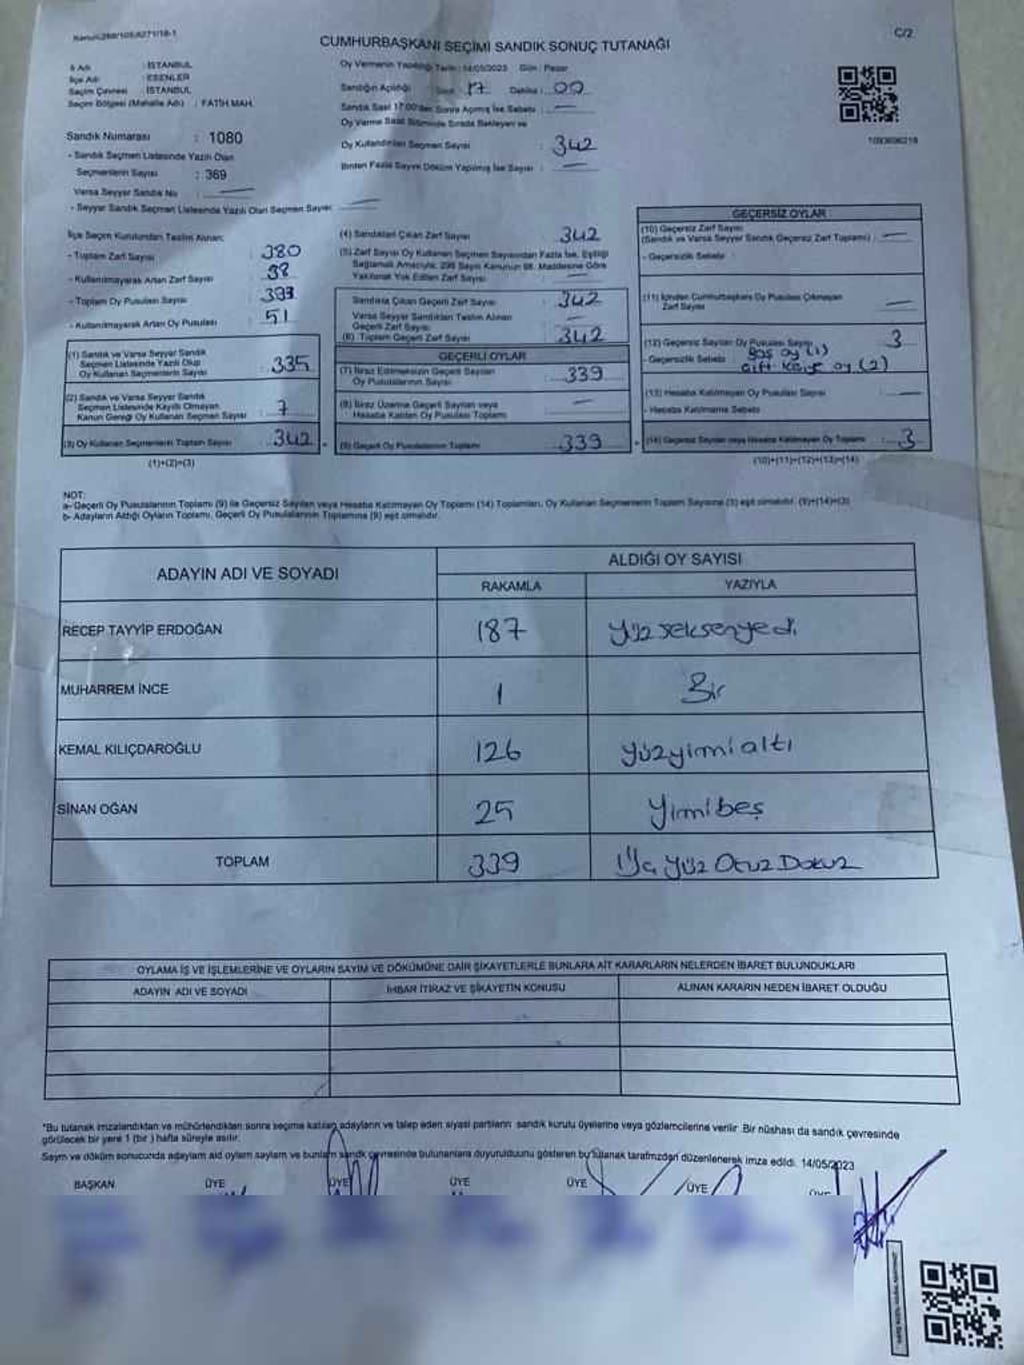 C/2
CUMHURBAŞKANI SEÇİMİ SANDIK SONUÇ TUTANAĞI
İl Adı : İSTANBUL
İlçe Adı : ESENLER
Seçim Çevresi : İSTANBUL
Seçim Bölgesi (Mahalle Adı) : FATİH MAH.
Sandık Numarası : 1080
- Sandık Seçmen Listesinde Yazılı Olan
Seçmenlerin Sayısı : 369
Varsa Seyyar Sandık No : —
- Seyyar Sandık Seçmen Listesinde Yazılı Olan Seçmen Sayısı —
Oy Vermenin Yapıldığı Tarih : 14/05/2023 Gün : Pazar
Sandığın Açıldığı Saat : 17 Dakika : 00
Sandık Saat 17:00'den Sonra Açılmış İse Sebebi : —
Oy Verme Saati Bitiminde Sırada Bekleyen ve
Oy Kullandırılan Seçmen Sayısı 342
Birden Fazla Sayım Döküm Yapılmış İse Sayısı : —
1093696218
İlçe Seçim Kurulundan Teslim Alınan:
- Toplam Zarf Sayısı : 380
- Kullanılmayarak Artan Zarf Sayısı : 38
- Toplam Oy Pusulası Sayısı : 393
- Kullanılmayarak Artan Oy Pusulası : 51
(1) Sandık ve Varsa Seyyar Sandık
Seçmen Listesinde Yazılı Olup
Oy Kullanan Seçmenlerin Sayısı : 335
(2) Sandık ve Varsa Seyyar Sandık
Seçmen Listesinde Kayıtlı Olmayan
Kanun Gereği Oy Kullanan Seçmen Sayısı : 7
(3) Oy Kullanan Seçmenlerin Toplam Sayısı : 342
(1)+(2)=(3)
(4) Sandıktan Çıkan Zarf Sayısı : 342
(5) Zarf Sayısı Oy Kullanan Seçmen Sayısından Fazla İse, Eşitliği
Sağlamak Amacıyla, 298 Sayılı Kanunun 98. Maddesine Göre
Yakılarak Yok Edilen Zarf Sayısı : —
Sandıkta Çıkan Geçerli Zarf Sayısı : 342
Varsa Seyyar Sandıktan Teslim Alınan
Geçerli Zarf Sayısı : —
(6) Toplam Geçerli Zarf Sayısı : 342
GEÇERLİ OYLAR
(7) İtiraz Edilmeksizin Geçerli Sayılan
Oy Pusulalarının Sayısı : 339
(8) İtiraz Üzerine Geçerli Sayılan veya
Hesaba Katılan Oy Pusulaları Toplamı : —
(9) Geçerli Oy Pusulalarının Toplamı : 339
GEÇERSİZ OYLAR
(10) Geçersiz Zarf Sayısı
(Sandık ve Varsa Seyyar Sandık Geçersiz Zarf Toplamı) : —
- Geçersizlik Sebebi :
(11) İçinden Cumhurbaşkanı Oy Pusulası Çıkmayan
Zarf Sayısı : —
(12) Geçersiz Sayılan Oy Pusulası Sayısı : 3
- Geçersizlik Sebebi : Boş oy (1)
Çift kaşe oy (2)
(13) Hesaba Katılmayan Oy Pusulası Sayısı : —
- Hesaba Katılmama Sebebi
(14) Geçersiz Sayılan veya Hesaba Katılmayan Oy Toplamı : 3
(10)+(11)+(12)+(13)=(14)
NOT:
a- Geçerli Oy Pusulalarının Toplamı (9) ile Geçersiz Sayılan veya Hesaba Katılmayan Oy Toplamı (14) Toplamları, Oy Kullanan Seçmenlerin Toplam Sayısına (3) eşit olmalıdır. (9)+(14)=(3)
b- Adayların Aldığı Oyların Toplamı, Geçerli Oy Pusulalarının Toplamına (9) eşit olmalıdır.
ADAYIN ADI VE SOYADI
ALDIĞI OY SAYISI
RAKAMLA YAZIYLA
RECEP TAYYİP ERDOĞAN 187 Yüz seksenyedi
MUHARREM İNCE 1 Bir
KEMAL KILIÇDAROĞLU 126 yüzyimialtı
SİNAN OĞAN 25 Yimibeş
TOPLAM 339 Üç Yüz Otuz Dokuz
OYLAMA İŞ VE İŞLEMLERİNE VE OYLARIN SAYIM VE DÖKÜMÜNE DAİR ŞİKAYETLERLE BUNLARA AİT KARARLARIN NELERDEN İBARET BULUNDUKLARI
ADAYIN ADI VE SOYADI İHBAR İTİRAZ VE ŞİKAYETİN KONUSU ALINAN KARARIN NEDEN İBARET OLDUĞU
*Bu tutanak imzalandıktan ve mühürlendikten sonra seçime katılan adayların ve talep eden siyasi partilerin sandık kurulu üyelerine veya gözlemcilerine verilir. Bir nüshası da sandık çevresinde
görülecek bir yere 1 (bir) hafta süreyle asılır.
Sayım ve döküm sonucunda adayların aldığı oyların sayılarını ve bunların sandık çevresinde bulunanlara duyurulduğunu gösteren bu tutanak tarafımızdan düzenlenerek imza edildi. 14/05/2023
BAŞKAN ÜYE ÜYE ÜYE ÜYE ÜYE ÜYE